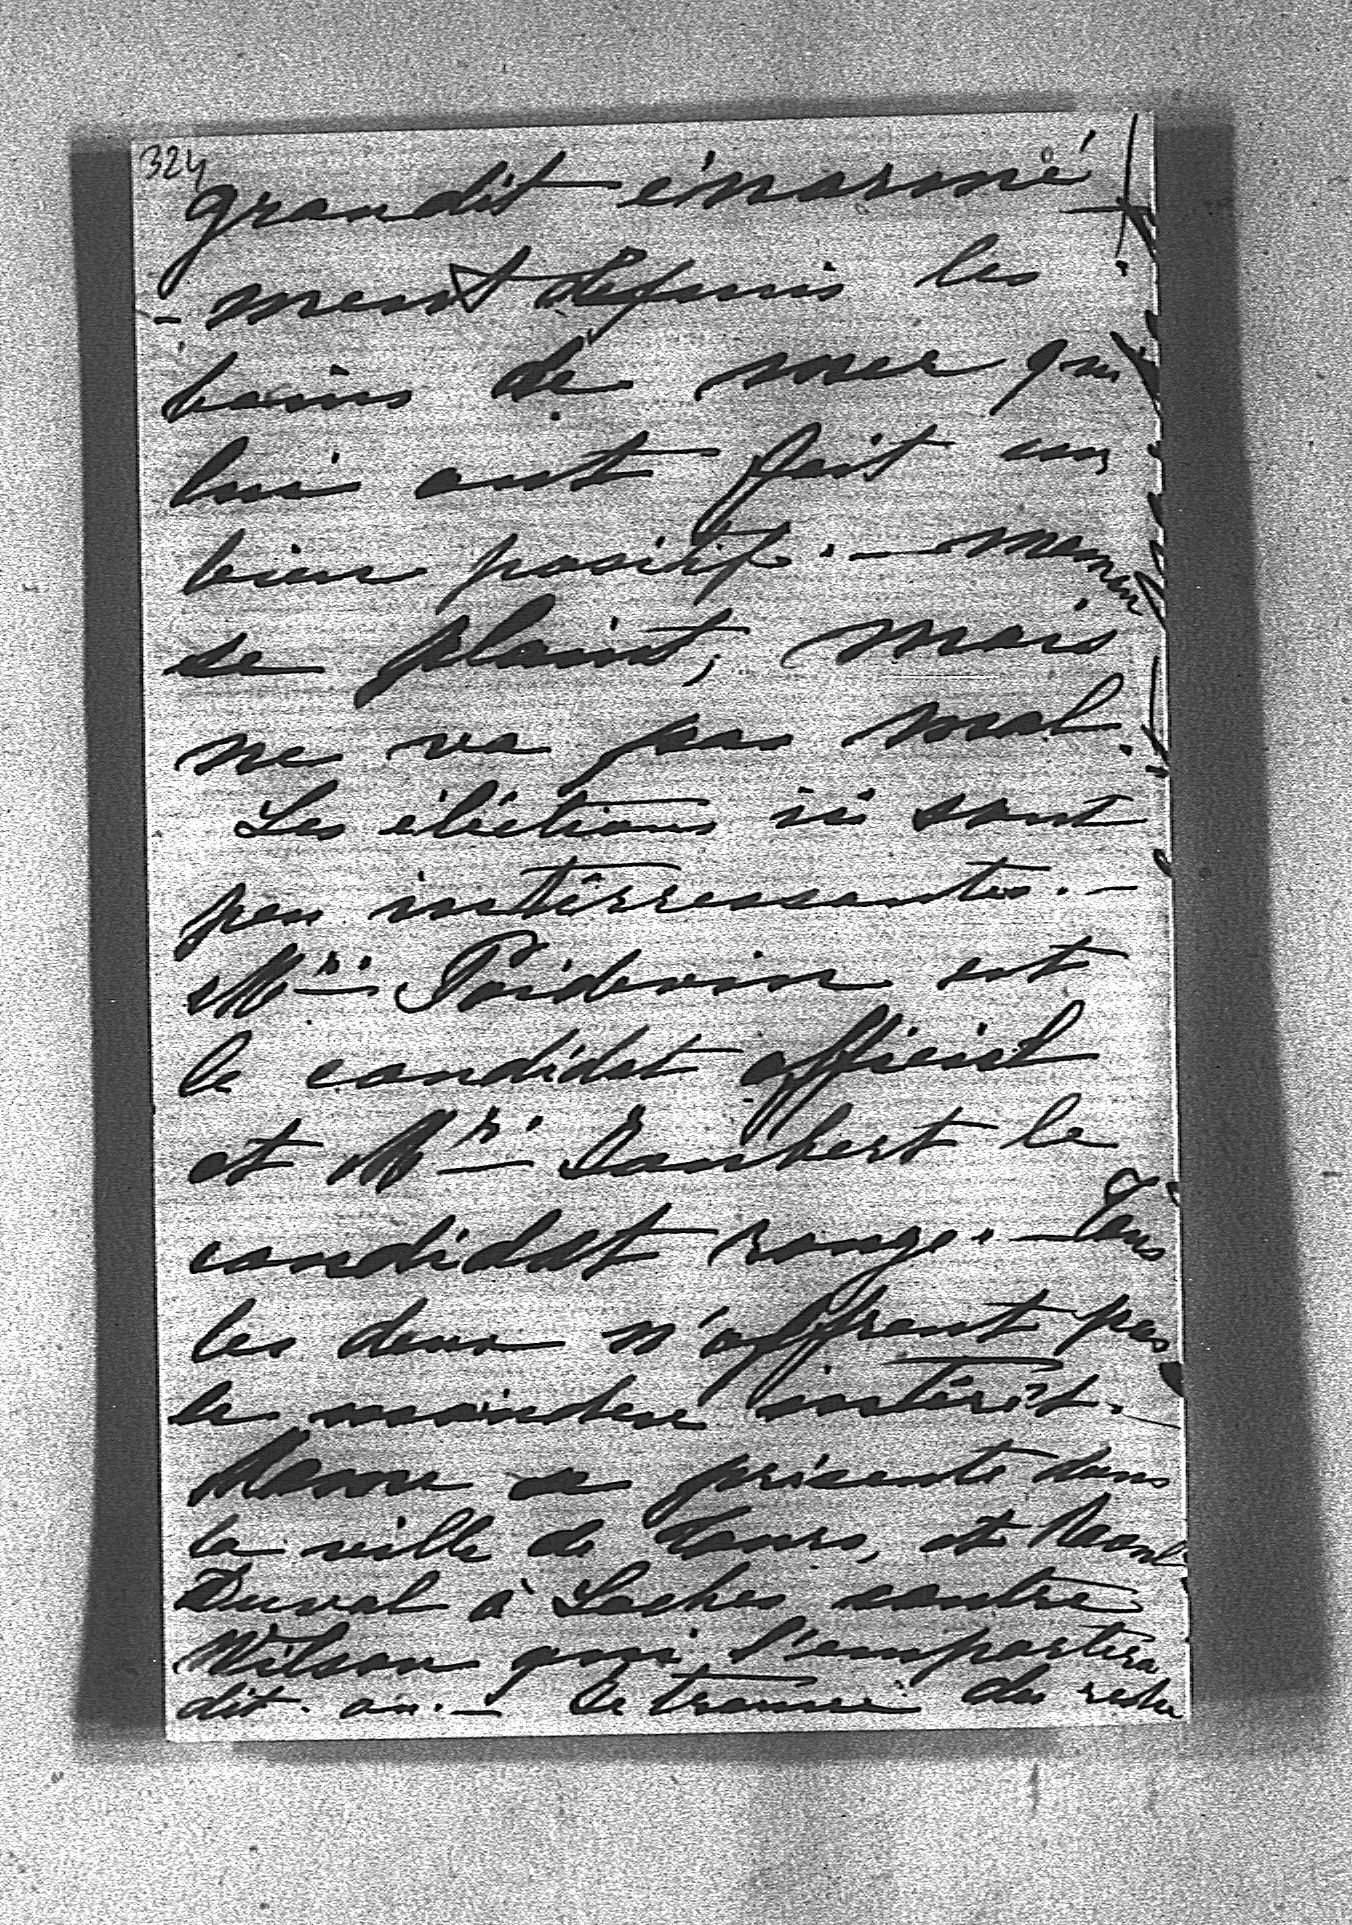 324
grandit énormé
-ment depuis les
bains de mer qui
lui ont fait un
bien positif. — Maman
se plaint, mais
ne va pas mal.
Les éléctions ici sont
peu intérressantes. —
Mr. Poidevin est
le candidat officiel
et Mr. Joubert le
candidat rouge. — Tous
les deux n'offrent pas
le moindre intérêt. —
Mame se présente dans
la ville de Tours, et Raoul
Duval à Loches contre
Wilson qui l'emportera
dit-on. — Je trouve du reste